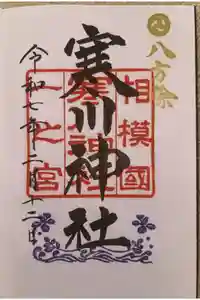 八方除
相模國
寒川神社
一之宮
令和七年二月十二日